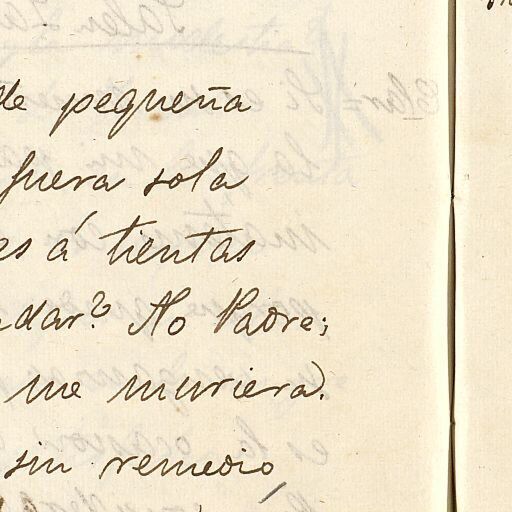 de pequeña
fuera sola
es á tientas
dar? No Padre;
me muriera.
sin remedio